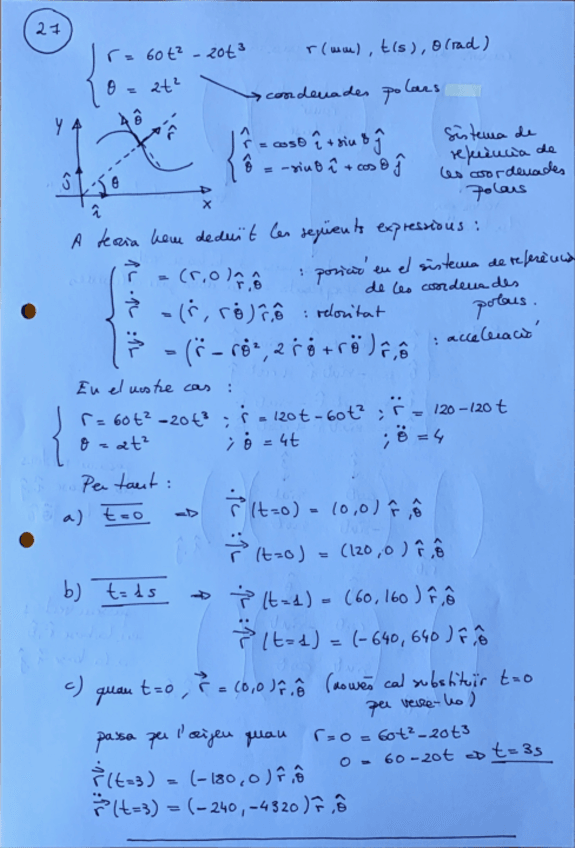 27
r = 60t² - 20t³     r (mm), t(s), θ(rad)
θ = 2t²
coordenades polars
y
θ̂
r̂
ĵ
θ
î
x
r̂ = cosθ î + sinθ ĵ
θ̂ = -sinθ î + cosθ ĵ
Sistema de
referència de
les coordenades
polars
A teoria hem deduït les següents expressions :
r⃗ = (r, 0) r̂,θ̂ : posició en el sistema de referència
de les coordenades
polars.
ṙ⃗ = (ṙ, rθ̇) r̂,θ̂ : velocitat
r̈⃗ = (r̈ - rθ̇², 2ṙθ̇ + rθ̈) r̂,θ̂ : acceleració
En el nostre cas :
r = 60t² - 20t³ ; ṙ = 120t - 60t² ; r̈ = 120 - 120t
θ = 2t² ; θ̇ = 4t ; θ̈ = 4
Per tant :
a) t=0 ⇒ ṙ⃗ (t=0) = (0,0) r̂,θ̂
r̈⃗ (t=0) = (120,0) r̂,θ̂
b) t=1s ⇒ ṙ⃗ (t=1) = (60,160) r̂,θ̂
r̈⃗ (t=1) = (-640, 640) r̂,θ̂
c) quan t=0, r⃗ = (0,0) r̂,θ̂ (només cal substituir t=0
per veure-ho)
passa per l'origen quan r=0 = 60t² - 20t³
0 = 60 - 20t ⇒ t=3s
ṙ⃗ (t=3) = (-180, 0) r̂,θ̂
r̈⃗ (t=3) = (-240, -4320) r̂,θ̂